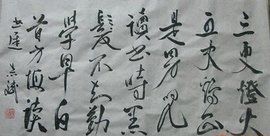 三更燈火
五更鷄正
是男児
讀書時黑
髮不知勤
學早白
首方悔讀
書遲